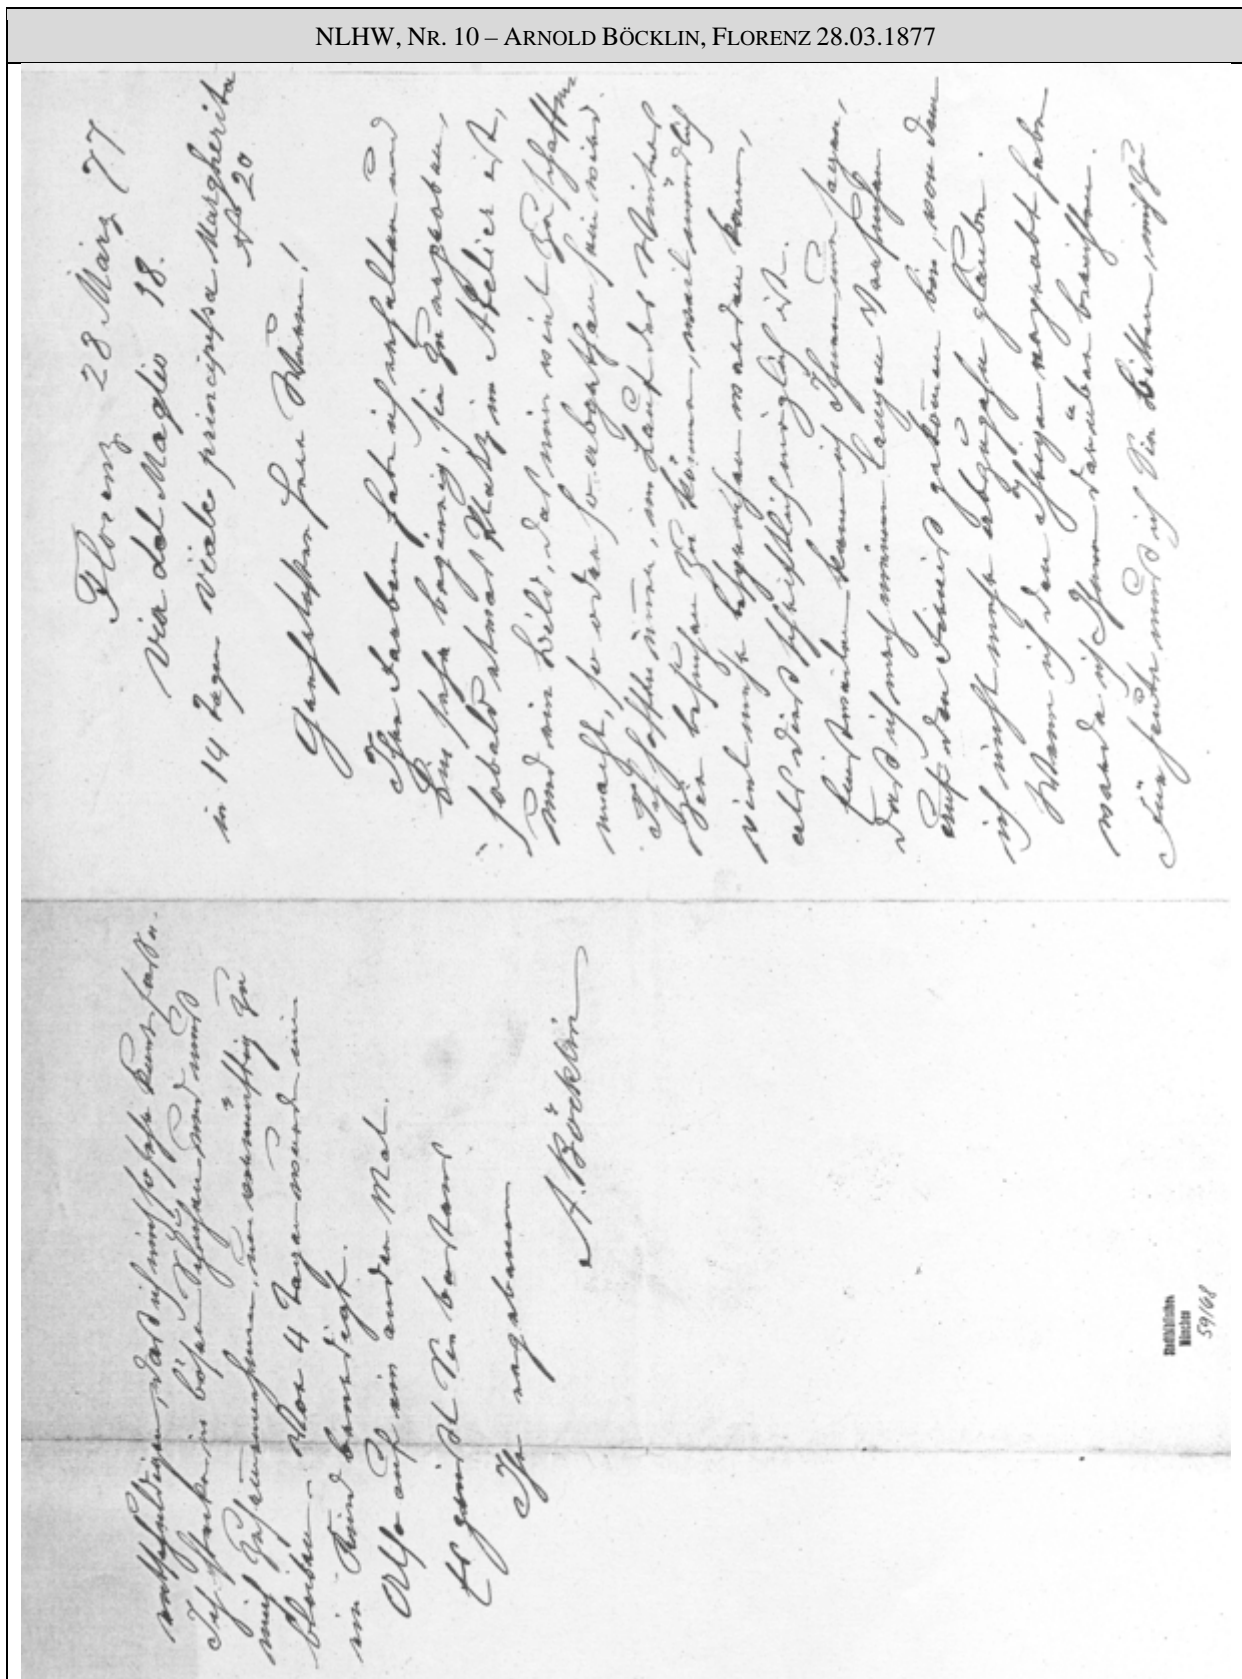 NLHW, NR. 10 – ARNOLD BÖCKLIN, FLORENZ 28.03.1877
Florenz 28 März 77
Via del Maglio 18.
in 14 Tagen Viale principessa Margherita
No 20
Geehrtester Herr Wurm!
Ihre Farben habe ich erhalten und
bin sehr begierig, sie zu erproben,
sobald etwas Platz im Atelier ist,
und ein Bild, das mir viel zu schaffen
macht, so oder so abgethan sein wird.
Ich hoffe immer, im Lauf des Winters
Sie besuchen zu können, weil mündlich
viel mehr besprochen werden kann,
als dies schriftlich möglich ist.
Einstweilen kann ich Ihnen nur sagen,
daß ich nach meinen langen Versuchen
auf den Firniß gekommen bin, von dem
ich nicht mehr abzugehen glaube.
Wenn ich den Ihrigen erprobt habe
werde ich Ihnen darüber berichten.
Für heute muß ich Sie bitten mich zu
entschuldigen, daß ich mich so sehr kurz fasse.
Ich stecke in bösen und muß
mich zusammennehmen, um vernünftig zu
bleiben. Vor 4 Tagen wurde mir
ein Kind beerdigt.
Also auf ein ander Mal.
Es grüßt Sie bestens
Ihr ergebener
A. Böcklin
Stadtbibliothek
München
59/68